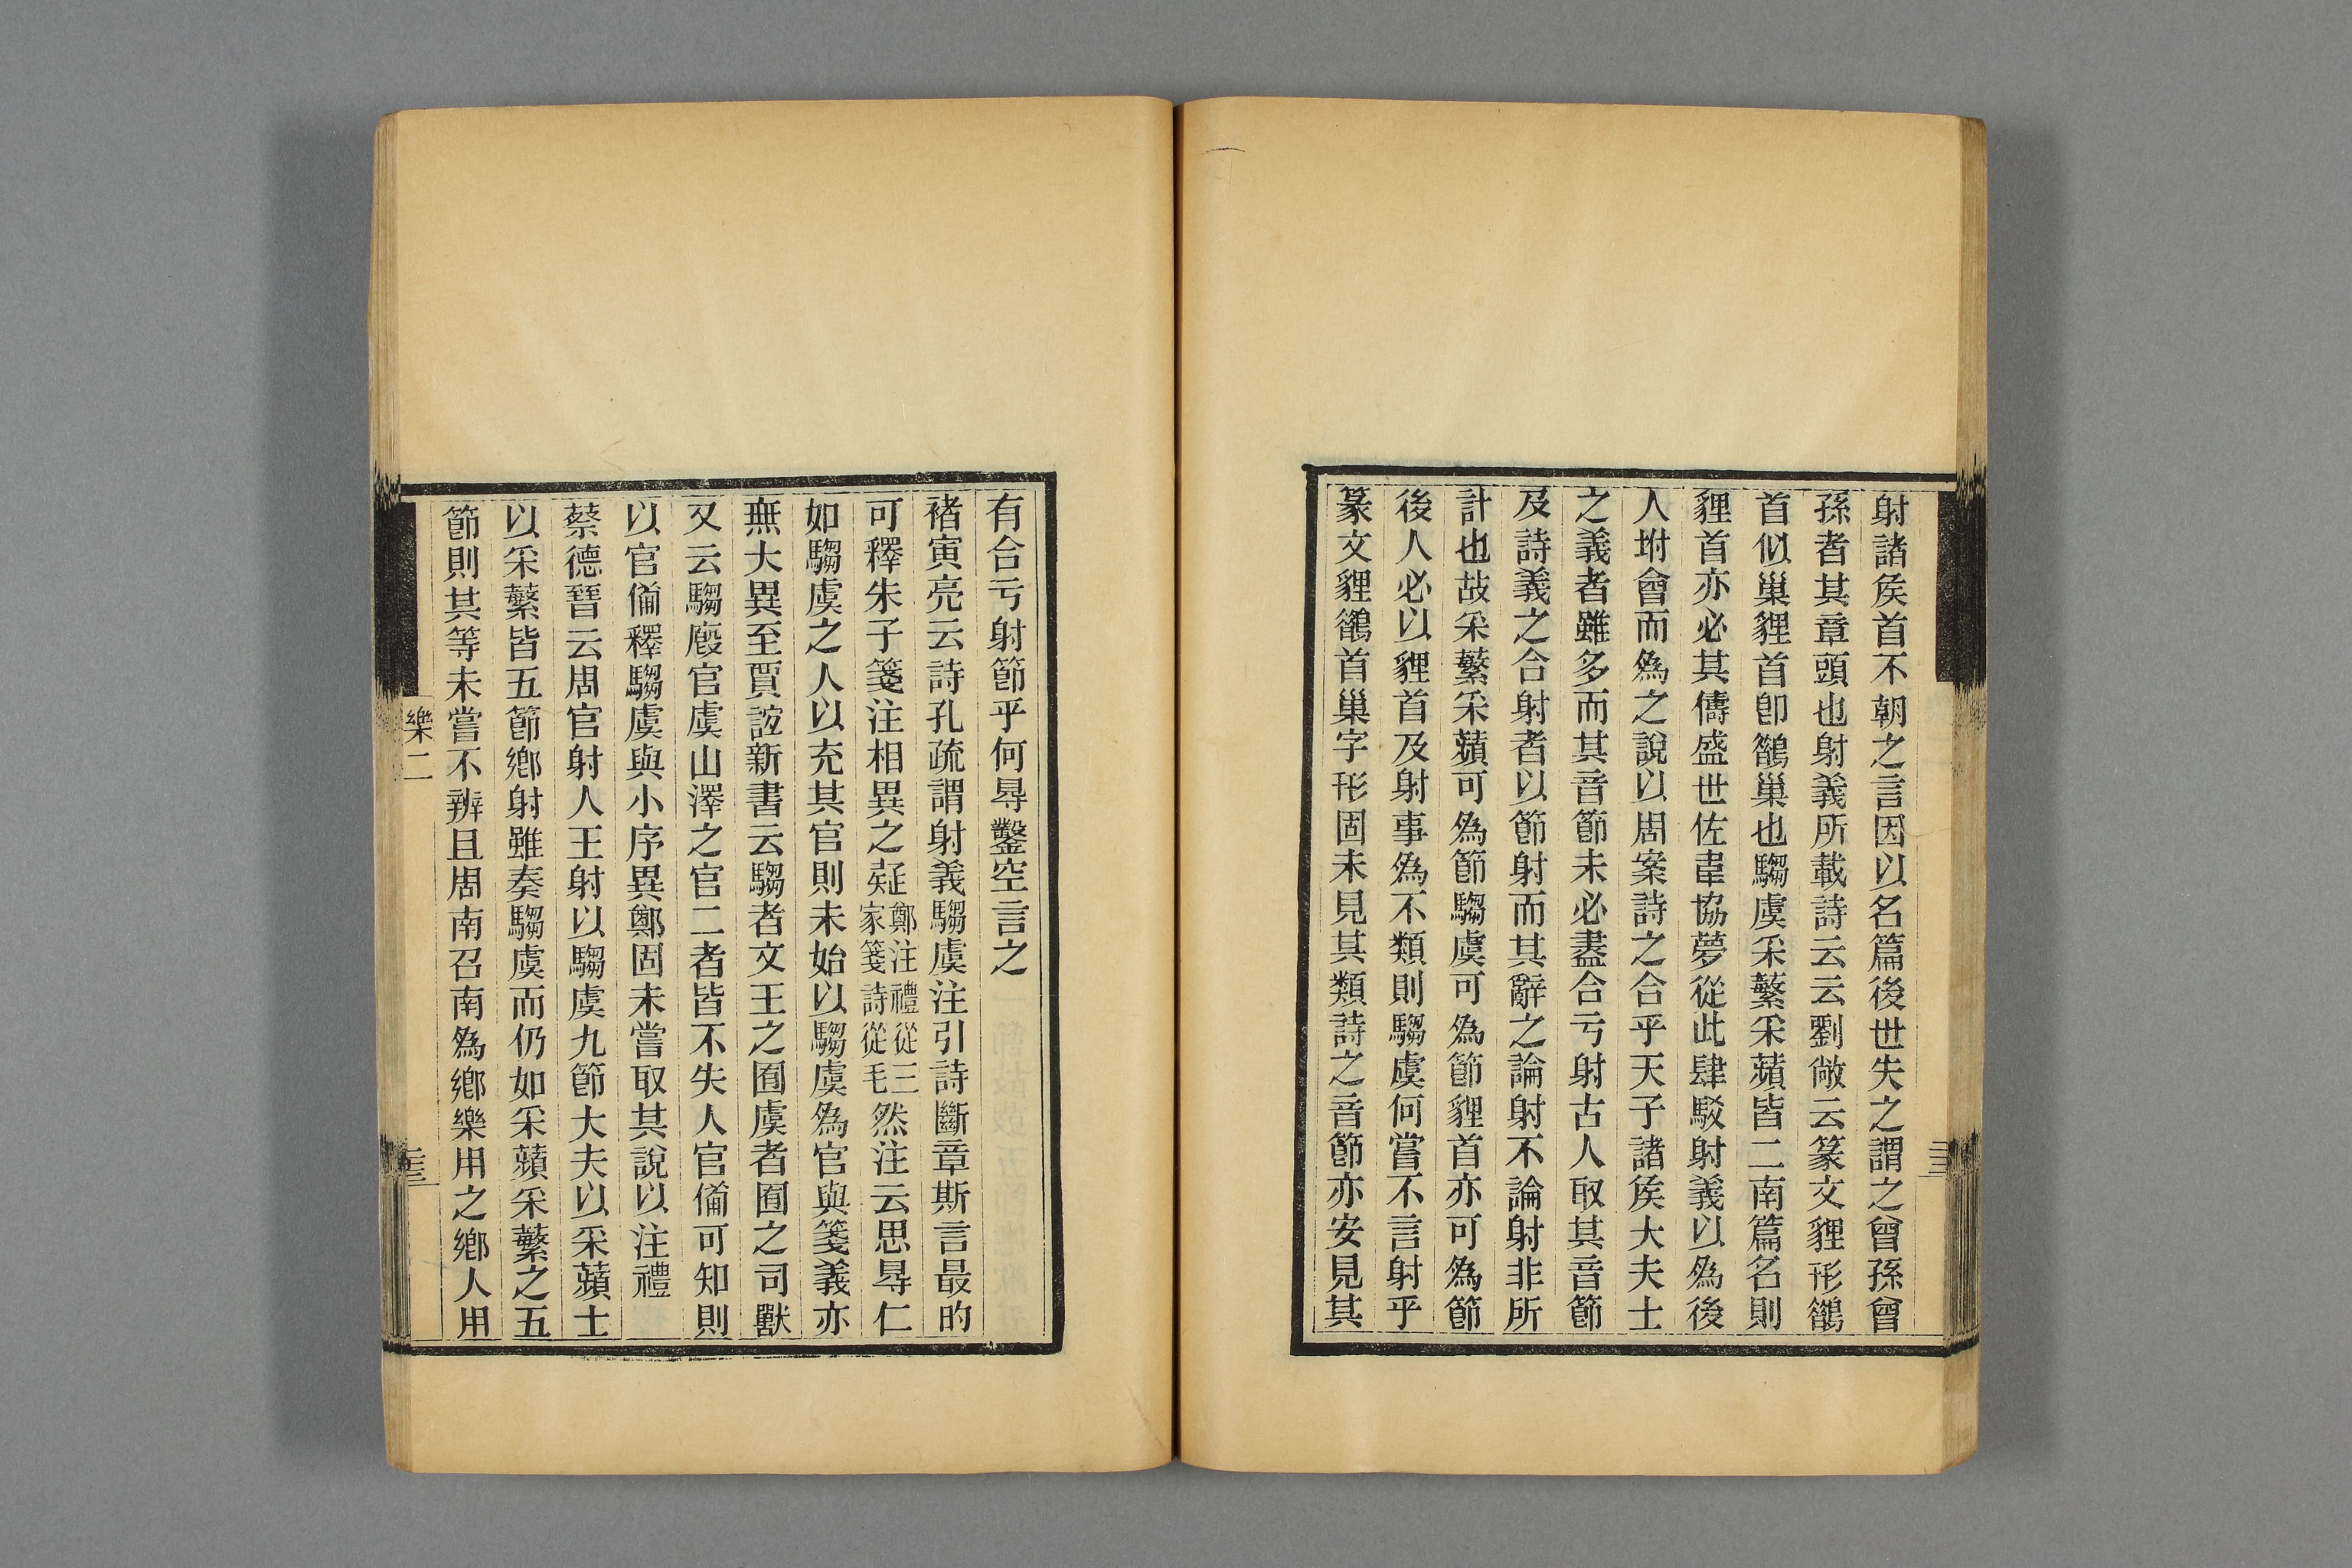 射諸矦首不朝之言因以名篇後世失之謂之曾孫曾
孫者其章頭也射義所載詩云云劉敞云篆文貍形鵲
首似巢貍首卽鵲巢也騶虞采蘩采蘋皆二南篇名則
貍首亦必其儔盛世佐韋協夢從此肆駁射義以爲後
人坿會而爲之說以周案詩之合乎天子諸矦大夫士
之義者雖多而其音節未必盡合亏射古人取其音節
及詩義之合射者以節射而其辭之論射不論射非所
計也故采蘩采蘋可爲節騶虞可爲節貍首亦可爲節
後人必以貍首及射事爲不類則騶虞何嘗不言射乎
篆文貍鵲首巢字形固未見其類詩之音節亦安見其
有合亏射節乎何㝵鑿空言之
褚寅亮云詩孔疏謂射義騶虞注引詩斷章斯言最旳
可釋朱子箋注相異之疑鄭注禮從三家箋詩從毛然注云思㝵仁
如騶虞之人以充其官則未始以騶虞爲官與箋義亦
無大異至賈誼新書云騶者文王之囿虞者囿之司獸
又云騶廄官虞山澤之官二者皆不失人官僃可知則
以官僃釋騶虞與小序異鄭固未嘗取其說以注禮
蔡德晉云周官射人王射以騶虞九節大夫以采蘋士
以采蘩皆五節鄉射雖奏騶虞而仍如采蘋采蘩之五
節則其等未嘗不辨且周南召南爲鄉樂用之鄉人用
樂二